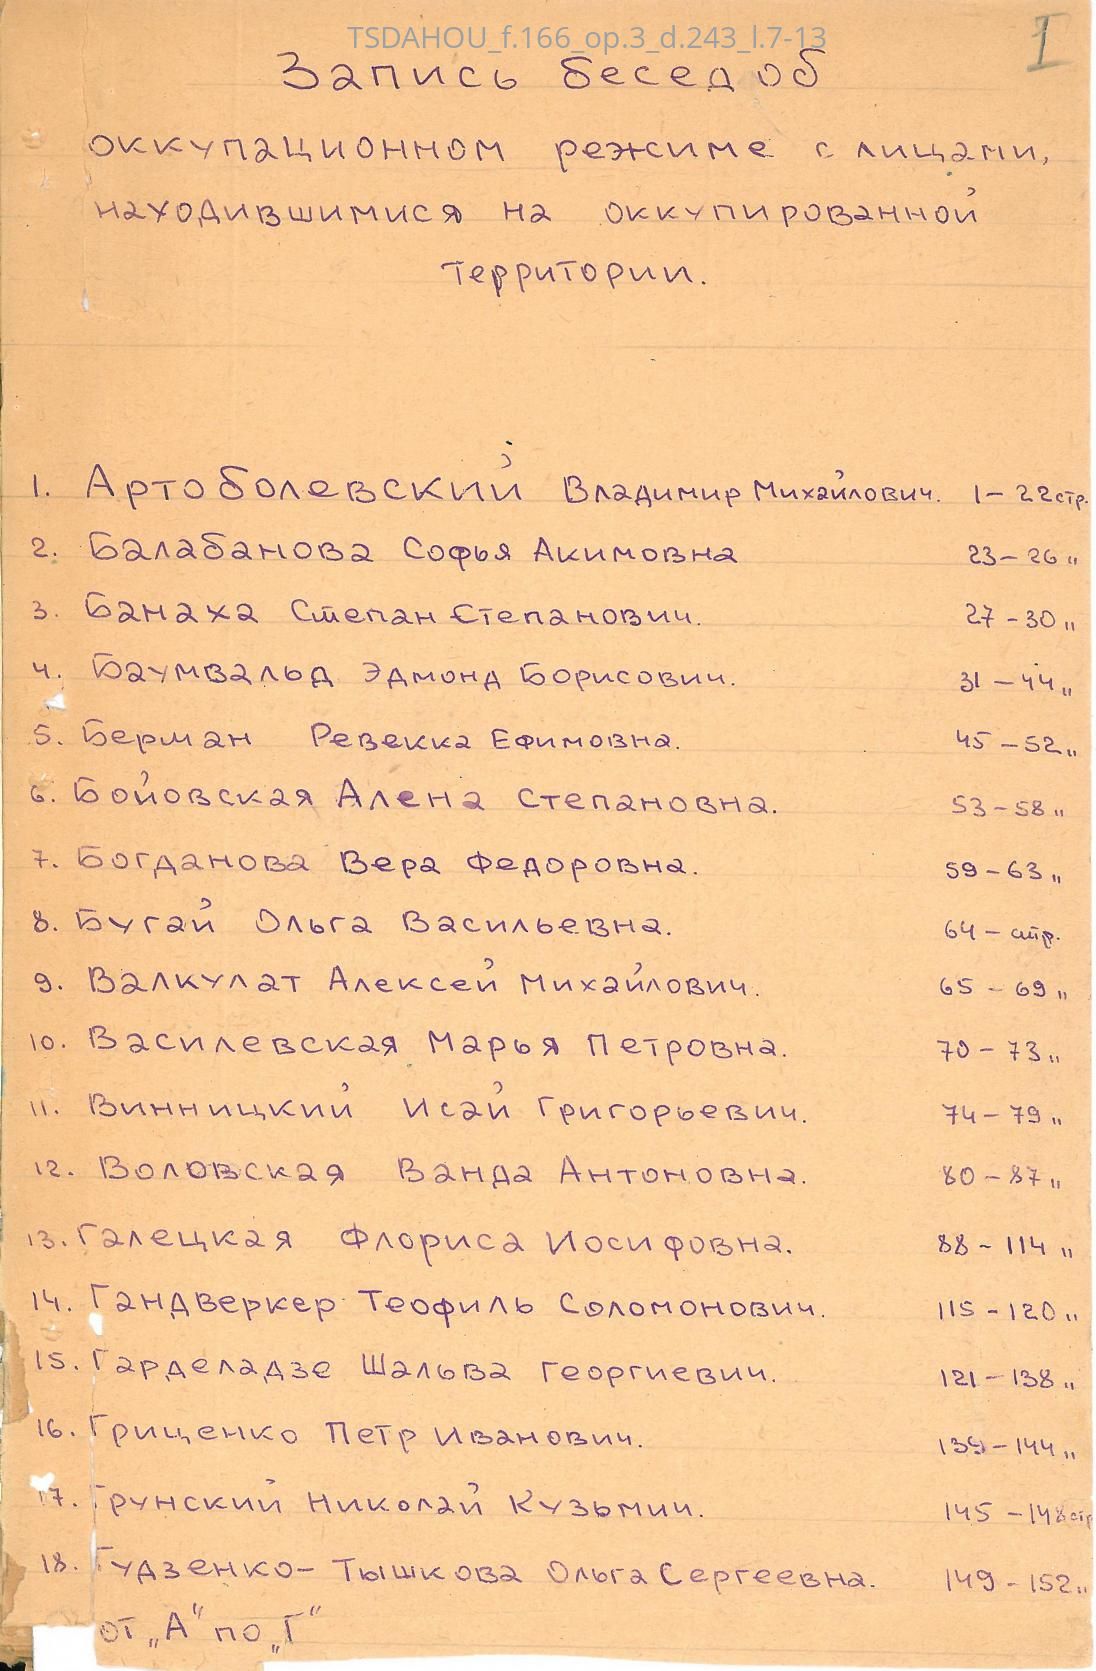 TSDAHOU_f.166_op.3_d.243_l.7-13
I
Запись бесед об
оккупационном режиме с лицами,
находившимися на оккупированной
территории.
1. Артоболевский Владимир Михайлович. 1-22 стр.
2. Балабанова Софья Акимовна 23-26 "
3. Банаха Степан Степанович. 27-30 "
4. Баумвальд Эдмонд Борисович. 31-44 "
5. Берман Ревекка Ефимовна. 45-52 "
6. Бойовская Алена Степановна. 53-58 "
7. Богданова Вера Федоровна. 59-63 "
8. Бугай Ольга Васильевна. 64- стр.
9. Валкулат Алексей Михайлович. 65-69 "
10. Василевская Марья Петровна. 70-73 "
11. Винницкий Исай Григорьевич. 74-79 "
12. Воловская Ванда Антоновна. 80-87 "
13. Галецкая Флориса Иосифовна. 88-114 "
14. Гандверкер Теофиль Соломонович. 115-120 "
15. Гарделадзе Шальва Георгиевич. 121-138 "
16. Гриценко Петр Иванович. 139-144 "
17. Грунский Николай Кузьмич. 145-148 стр
18. Гудзенко-Тышкова Ольга Сергеевна. 149-152 "
от „А" по „Г"